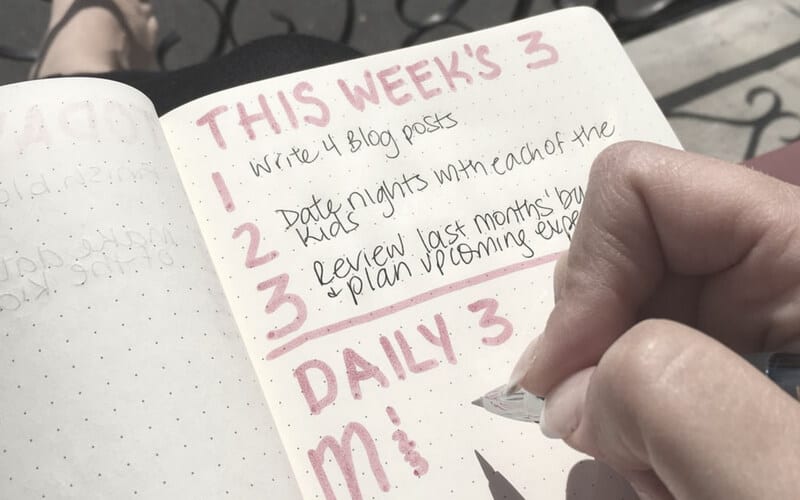 THIS WEEK'S 3
1 Write 4 Blog posts
2 Date nights with each of the
kids
3 Review last months'
& plan upcoming
DAILY 3
M 1
2
3